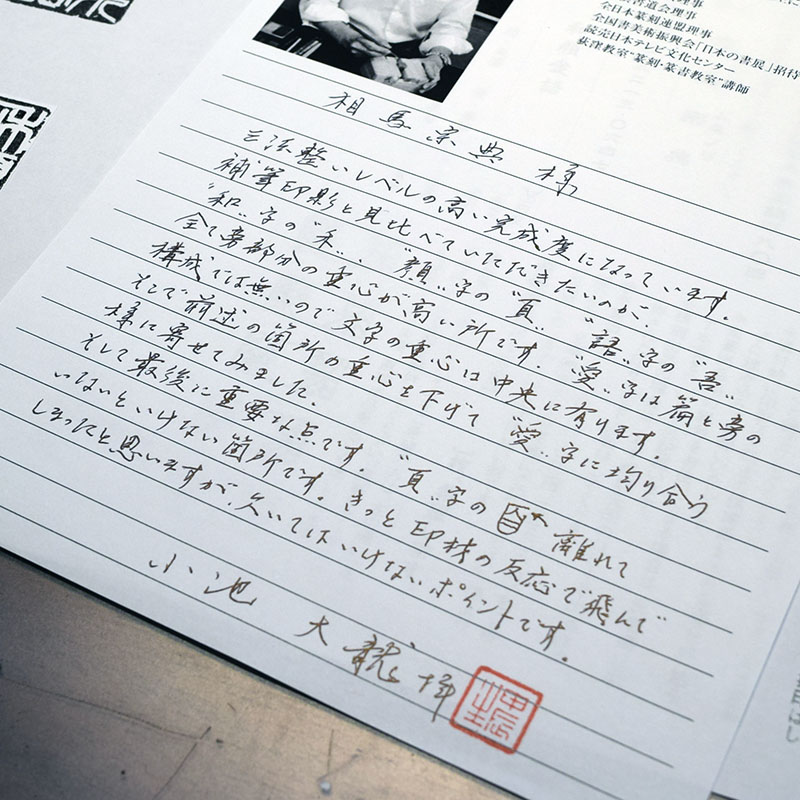 書道会理事
全日本篆刻連盟理事
全国書美術振興会「日本の書展」招待
読売日本テレビ文化センター
荻窪教室"篆刻・篆書教室"講師
相馬宗典 様
三法整いレベルの高い完成度になっています。
補筆印影と見比べていただきたいのが、
"和"字の"禾"、"顔"字の"頁"、"語"字の"吾"
全て旁部分の重心が高い所です。"愛"字は篇と旁の
構成では無いので文字の重心は中央に有ります。
そこで前述の箇所の重心を下げて"愛"字に均り合う
様に寄せてみました。
そして最後に重要な点です。"頁"字の 離れて
いないといけない箇所です。きっと印材の反応で飛んで
しまったと思いますが、欠いてはいけないポイントです。
小池 大龍